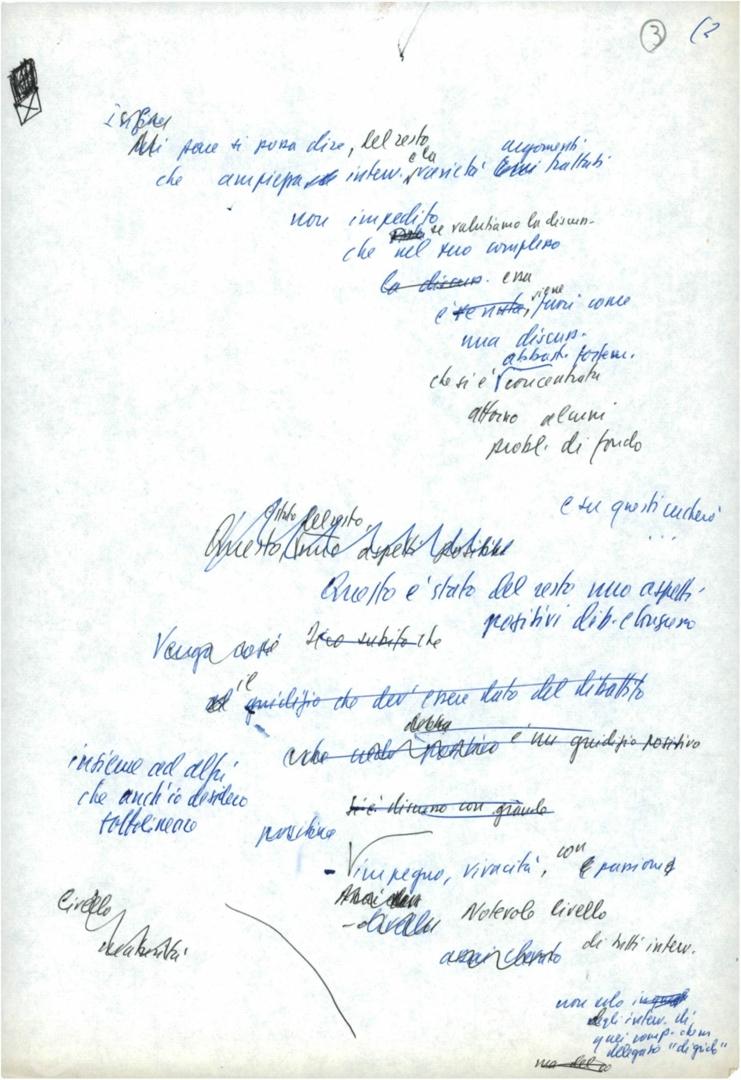 3
Mi pare si possa dire, del resto
argomenti
che ampiezza interv. e la varietà trattati
non impedito
se valutiamo la discuss.
che nel suo complesso
la discuss. essa
è venuta, viene fuori come
una discuss.
abbast. fortem.
che si è concentrata
attorno alcuni
probl. di fondo
e su questi cercherò
...
stato del resto
Questo aspetti positivi
Questo è stato del resto uno aspetti
positivi dib. e Congresso
Venga così Dico subito che
il
giudizio che dev'essere dato del dibattito
debba
è un giudizio positivo
insieme ad altri
che anch'io desidero
sottolineare
Si è discusso con grande
positivo
- impegno, vivacità, con passione
Livello
Notevole livello
- livello
maturità
di tutti interv.
assai elevato
non solo
degli interv. di
quei comp. che
delegato "di grido"
ma del